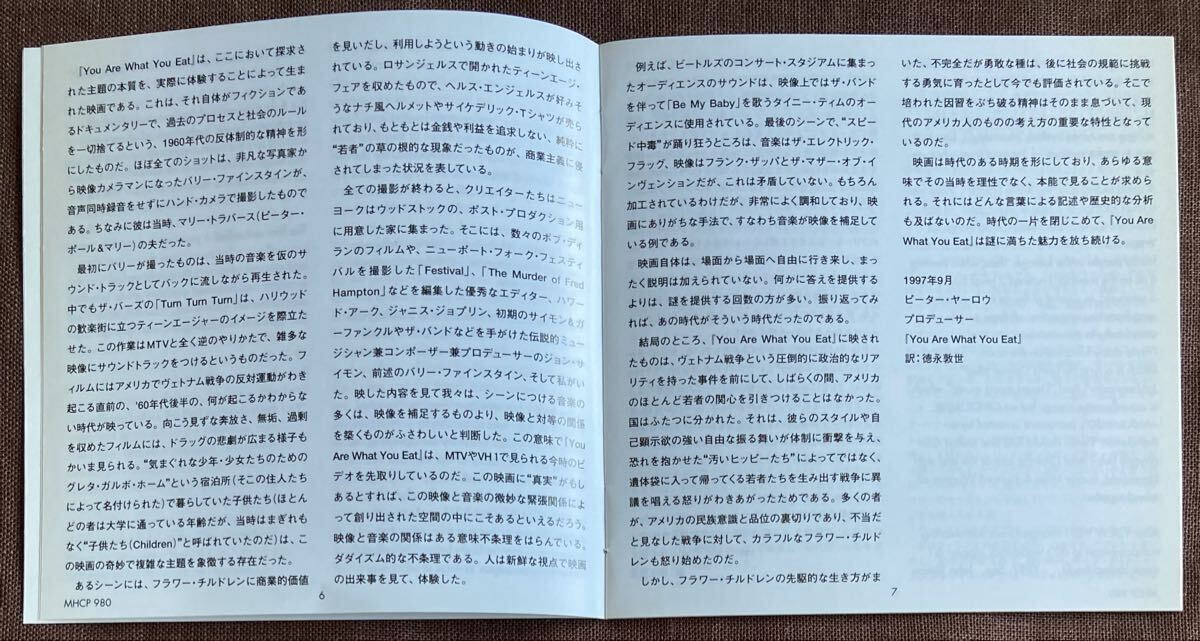 『You Are What You Eat』は、ここにおいて探求さ
れた主題の本質を、実際に体験することによって生ま
れた映画である。これは、それ自体がフィクションであ
るドキュメンタリーで、過去のプロセスと社会のルール
を一切捨てるという、1960年代の反体制的な精神を形
にしたものだ。ほぼ全てのショットは、非凡な写真家か
ら映像カメラマンになったバリー・ファインスタインが、
音声同時録音をせずにハンド・カメラで撮影したもので
ある。ちなみに彼は当時、マリー・トラバース(ピーター・
ポール&マリー)の夫だった。
最初にバリーが撮ったものは、当時の音楽を仮のサ
ウンド・トラックとしてバックに流しながら再生された。
中でもザ・バーズの「Turn Turn Turn」は、ハリウッド
の歓楽街に立つティーンエージャーのイメージを際立た
せた。この作業はMTVと全く逆のやりかたで、雑多な
映像にサウンドトラックをつけるというものだった。フ
ィルムにはアメリカでヴェトナム戦争の反対運動がわき
起こる直前の、'60年代後半の、何が起こるかわからな
い時代が映っている。向こう見ずな奔放さ、無垢、過剰
を収めたフィルムには、ドラッグの悲劇が広まる様子も
かいま見られる。“気まぐれな少年・少女たちのための
グレタ・ガルボ・ホーム”という宿泊所(そこの住人たち
によって名付けられた)で暮らしていた子供たち(ほとん
どの者は大学に通っている年齢だが、当時はまぎれも
なく“子供たち(Children)”と呼ばれていたのだ)は、こ
の映画の奇妙で複雑な主題を象徴する存在だった。
あるシーンには、フラワー・チルドレンに商業的価値
MHCP 980
を見いだし、利用しようという動きの始まりが映し出さ
れている。ロサンジェルスで開かれたティーンエージ・
フェアを収めたもので、ヘルス・エンジェルスが好みそ
うなナチ風ヘルメットやサイケデリック・Tシャツが売ら
れており、もともとは金銭や利益を追求しない、純粋に
“若者”の草の根的な現象だったものが、商業主義に侵
されてしまった状況を表している。
全ての撮影が終わると、クリエイターたちはニュー
ヨークはウッドストックの、ポスト・プロダクション用
に用意した家に集まった。そこには、数々のボブ・ディ
ランのフィルムや、ニューポート・フォーク・フェスティ
バルを撮影した「Festival」、「The Murder of Fred
Hampton」などを編集した優秀なエディター、ハワー
ド・アーク、ジャニス・ジョプリン、初期のサイモン&ガ
ーファンクルやザ・バンドなどを手がけた伝説的ミュー
ジシャン兼コンポーザー兼プロデューサーのジョン・サ
イモン、前述のバリー・ファインスタイン、そして私がい
た。映した内容を見て我々は、シーンにつける音楽の
多くは、映像を補足するものより、映像と対等の関係
を築くものがふさわしいと判断した。この意味で『You
Are What You Eat』は、MTVやVH1で見られる今時のビ
デオを先取りしているのだ。この映画に“真実”がもし
あるとすれば、この映像と音楽の微妙な緊張関係によ
って創り出された空間の中にこそあるといえるだろう。
映像と音楽の関係はある意味不条理をはらんでいる。
ダダイズム的な不条理である。人は新鮮な視点で映画
の出来事を見て、体験した。
6
例えば、ビートルズのコンサート・スタジアムに集まっ
たオーディエンスのサウンドは、映像上ではザ・バンド
を伴って「Be My Baby」を歌うタイニー・ティムのオー
ディエンスに使用されている。最後のシーンで、“スピー
ド中毒”が踊り狂うところは、音楽はザ・エレクトリック・
フラッグ、映像はフランク・ザッパとザ・マザー・オブ・イ
ンヴェンションだが、これは矛盾していない。もちろん
加工されているわけだが、非常によく調和しており、映
画にありがちな手法で、すなわち音楽が映像を補足して
いる例である。
映画自体は、場面から場面へ自由に行き来し、まっ
たく説明は加えられていない。何かに答えを提供する
よりは、謎を提供する回数の方が多い。振り返ってみ
れば、あの時代がそういう時代だったのである。
結局のところ、『You Are What You Eat』に映され
たものは、ヴェトナム戦争という圧倒的に政治的なリア
リティを持った事件を前にして、しばらくの間、アメリカ
のほとんど若者の関心を引きつけることはなかった。
国はふたつに分かれた。それは、彼らのスタイルや自
己顕示欲の強い自由な振る舞いが体制に衝撃を与え、
恐れを抱かせた“汚いヒッピーたち”によってではなく、
遺体袋に入って帰ってくる若者たちを生み出す戦争に異
議を唱える怒りがわきあがったためである。多くの者
が、アメリカの民族意識と品位の裏切りであり、不当だ
と見なした戦争に対して、カラフルなフラワー・チルド
レンも怒り始めたのだ。
しかし、フラワー・チルドレンの先駆的な生き方がま
7
いた、不完全だが勇敢な種は、後に社会の規範に挑戦
する勇気に育ったとして今でも評価されている。そこで
培われた因習をぶち破る精神はそのまま息づいて、現
代のアメリカ人のものの考え方の重要な特性となって
いるのだ。
映画は時代のある時期を形にしており、あらゆる意
味でその当時を理性でなく、本能で見ることが求めら
れる。それにはどんな言葉による記述や歴史的な分析
も及ばないのだ。時代の一片を閉じこめて、『You Are
What You Eat』は謎に満ちた魅力を放ち続ける。
1997年9月
ピーター・ヤーロウ
プロデューサー
『You Are What You Eat』
訳：徳永敦世